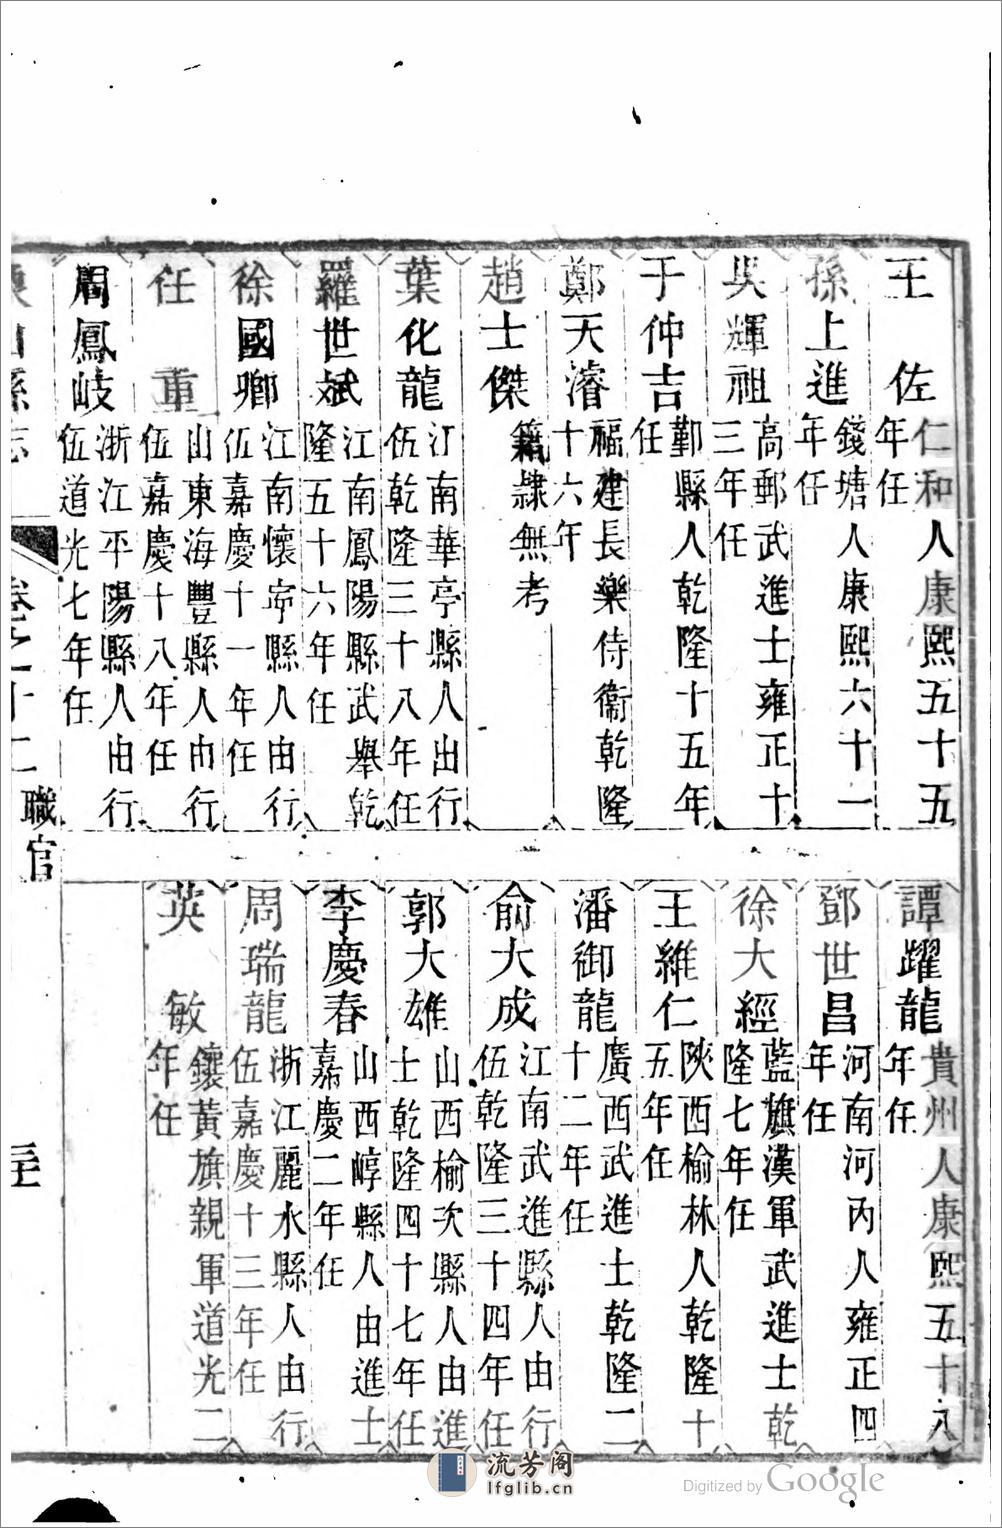 王　佐　仁和人康熙五十五年任
孫上進　錢塘人康熙六十一年任
吳輝祖　高郵武進士雍正十三年任
于仲吉　鄞縣人乾隆十五年任
鄭天濬　福建長樂侍衛乾隆十六年
趙士傑　籍隸無考
葉化龍　江南華亭縣人由行伍乾隆三十八年任
羅世斌　江南鳳陽縣武舉乾隆五十六年任
徐國鄉　江南懷寧縣人由行伍嘉慶十一年任
任　重　山東海豐縣人由行伍嘉慶十八年任
周鳳岐　浙江平陽縣人由行伍道光七年任
譚躍龍　貴州人康熙五十八年任
鄧世昌　河南河內人雍正四年任
徐大經　藍旗漢軍武進士乾隆七年任
王維仁　陝西榆林人乾隆十五年任
潘御龍　廣西武進士乾隆二十二年任
俞大成　江南武進縣人由行伍乾隆三十四年任
郭大雄　山西榆次縣人由進士乾隆四十七年任
李慶春　山西崞縣人由進士嘉慶二年任
周瑞龍　浙江麗水縣人由行伍嘉慶十三年任
英　敏　鑲黃旗親軍道光二年任
山縣志
卷之十二
職官
三十
流芳阁
lfglib.cn
Digitized by Google